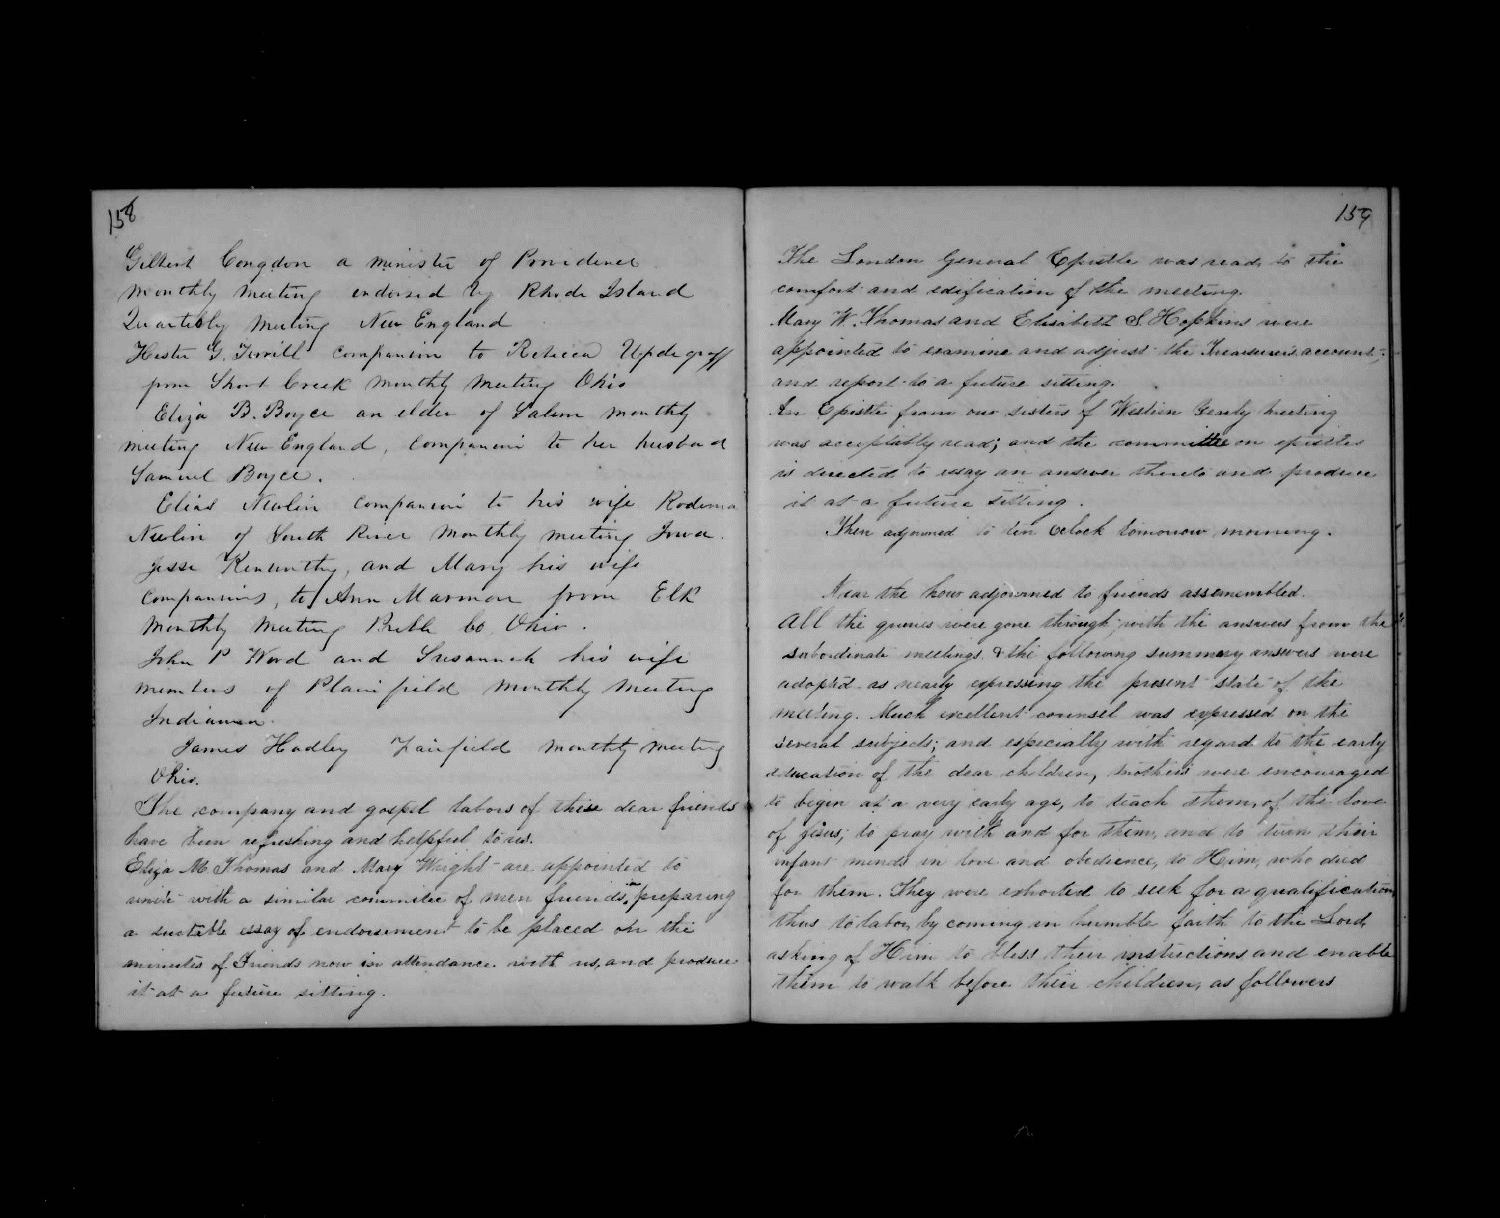 158
Gilbert Congdon a minister of Providence
Monthly Meeting endorsed by Rhode Island
Quarterly Meeting New England
Hester G. companion to Rebecca Updegraff
from Short Creek Monthly Meeting Ohio
Eliza B. Boyce an elder of Salem monthly
meeting New England, companion to her husband
Samuel Boyce.
Elias Newlin companion to his wife Rodema
Newlin of South River Monthly meeting Iowa.
Jesse Kenworthy, and Mary his wife
companions, to Ann Marmon from Elk
Monthly Meeting Preble Co. Ohio.
John P Wood and Susannah his wife
members of Plainfield Monthly Meeting
Indiana.
James Hadley Fairfield monthly meeting
Ohio.
The company and gospel labors of these dear friends
have been refreshing and helpful to us.
Eliza M. Thomas and Mary Wright are appointed to
unite with a similar committee of men friends, in preparing
a suitable essay of endorsement to be placed on the
minutes of Friends now in attendance with us, and produce
it at a future sitting.
159
The London General Epistle was read to the
comfort and edification of the meeting.
Mary W. Thomas and Elisabeth S. Hopkins were
appointed to examine and adjust the Treasurer's account,
and report to a future sitting.
An Epistle from our sisters of Western Yearly Meeting
was acceptably read; and the committee on epistles
is directed to essay an answer thereto and produce
it at a future sitting.
Then adjourned to ten Oclock tomorrow morning.
Near the hour adjourned to friends assemembled.
All the queries were gone through with the answers from the
subordinate meetings & the following summary answers were
adopted as nearly expressing the present state of the
meeting. Much excellent counsel was expressed on the
several subjects; and especially with regard to the early
education of the dear children, mothers were encouraged
to begin at a very early age, to teach them, of the love
of Jesus; to pray with and for them, and to turn their
infant minds in love and obedience, to Him, who died
for them. They were exhorted to seek for a qualification
thus to labor, by coming in humble faith to the Lord,
asking of Him to bless their instructions and enable
them to walk before their children, as followers